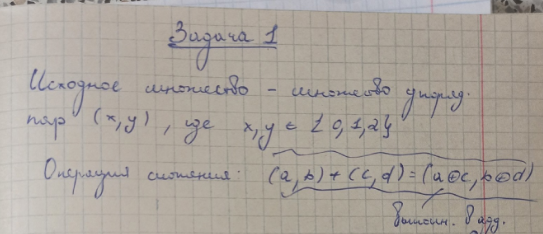 Задача 1
Исходное множество - множество упоряд.
пар (x,y), где x,y ∈ {0,1,2}
Операция сложения: (a,b)+(c,d)=(a⊕c,b⊕d)
в адд.